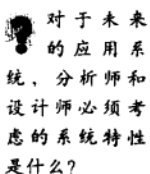 对于未来
的应用系
统，分析师和
设计师必须考
虑的系统特性
是什么？